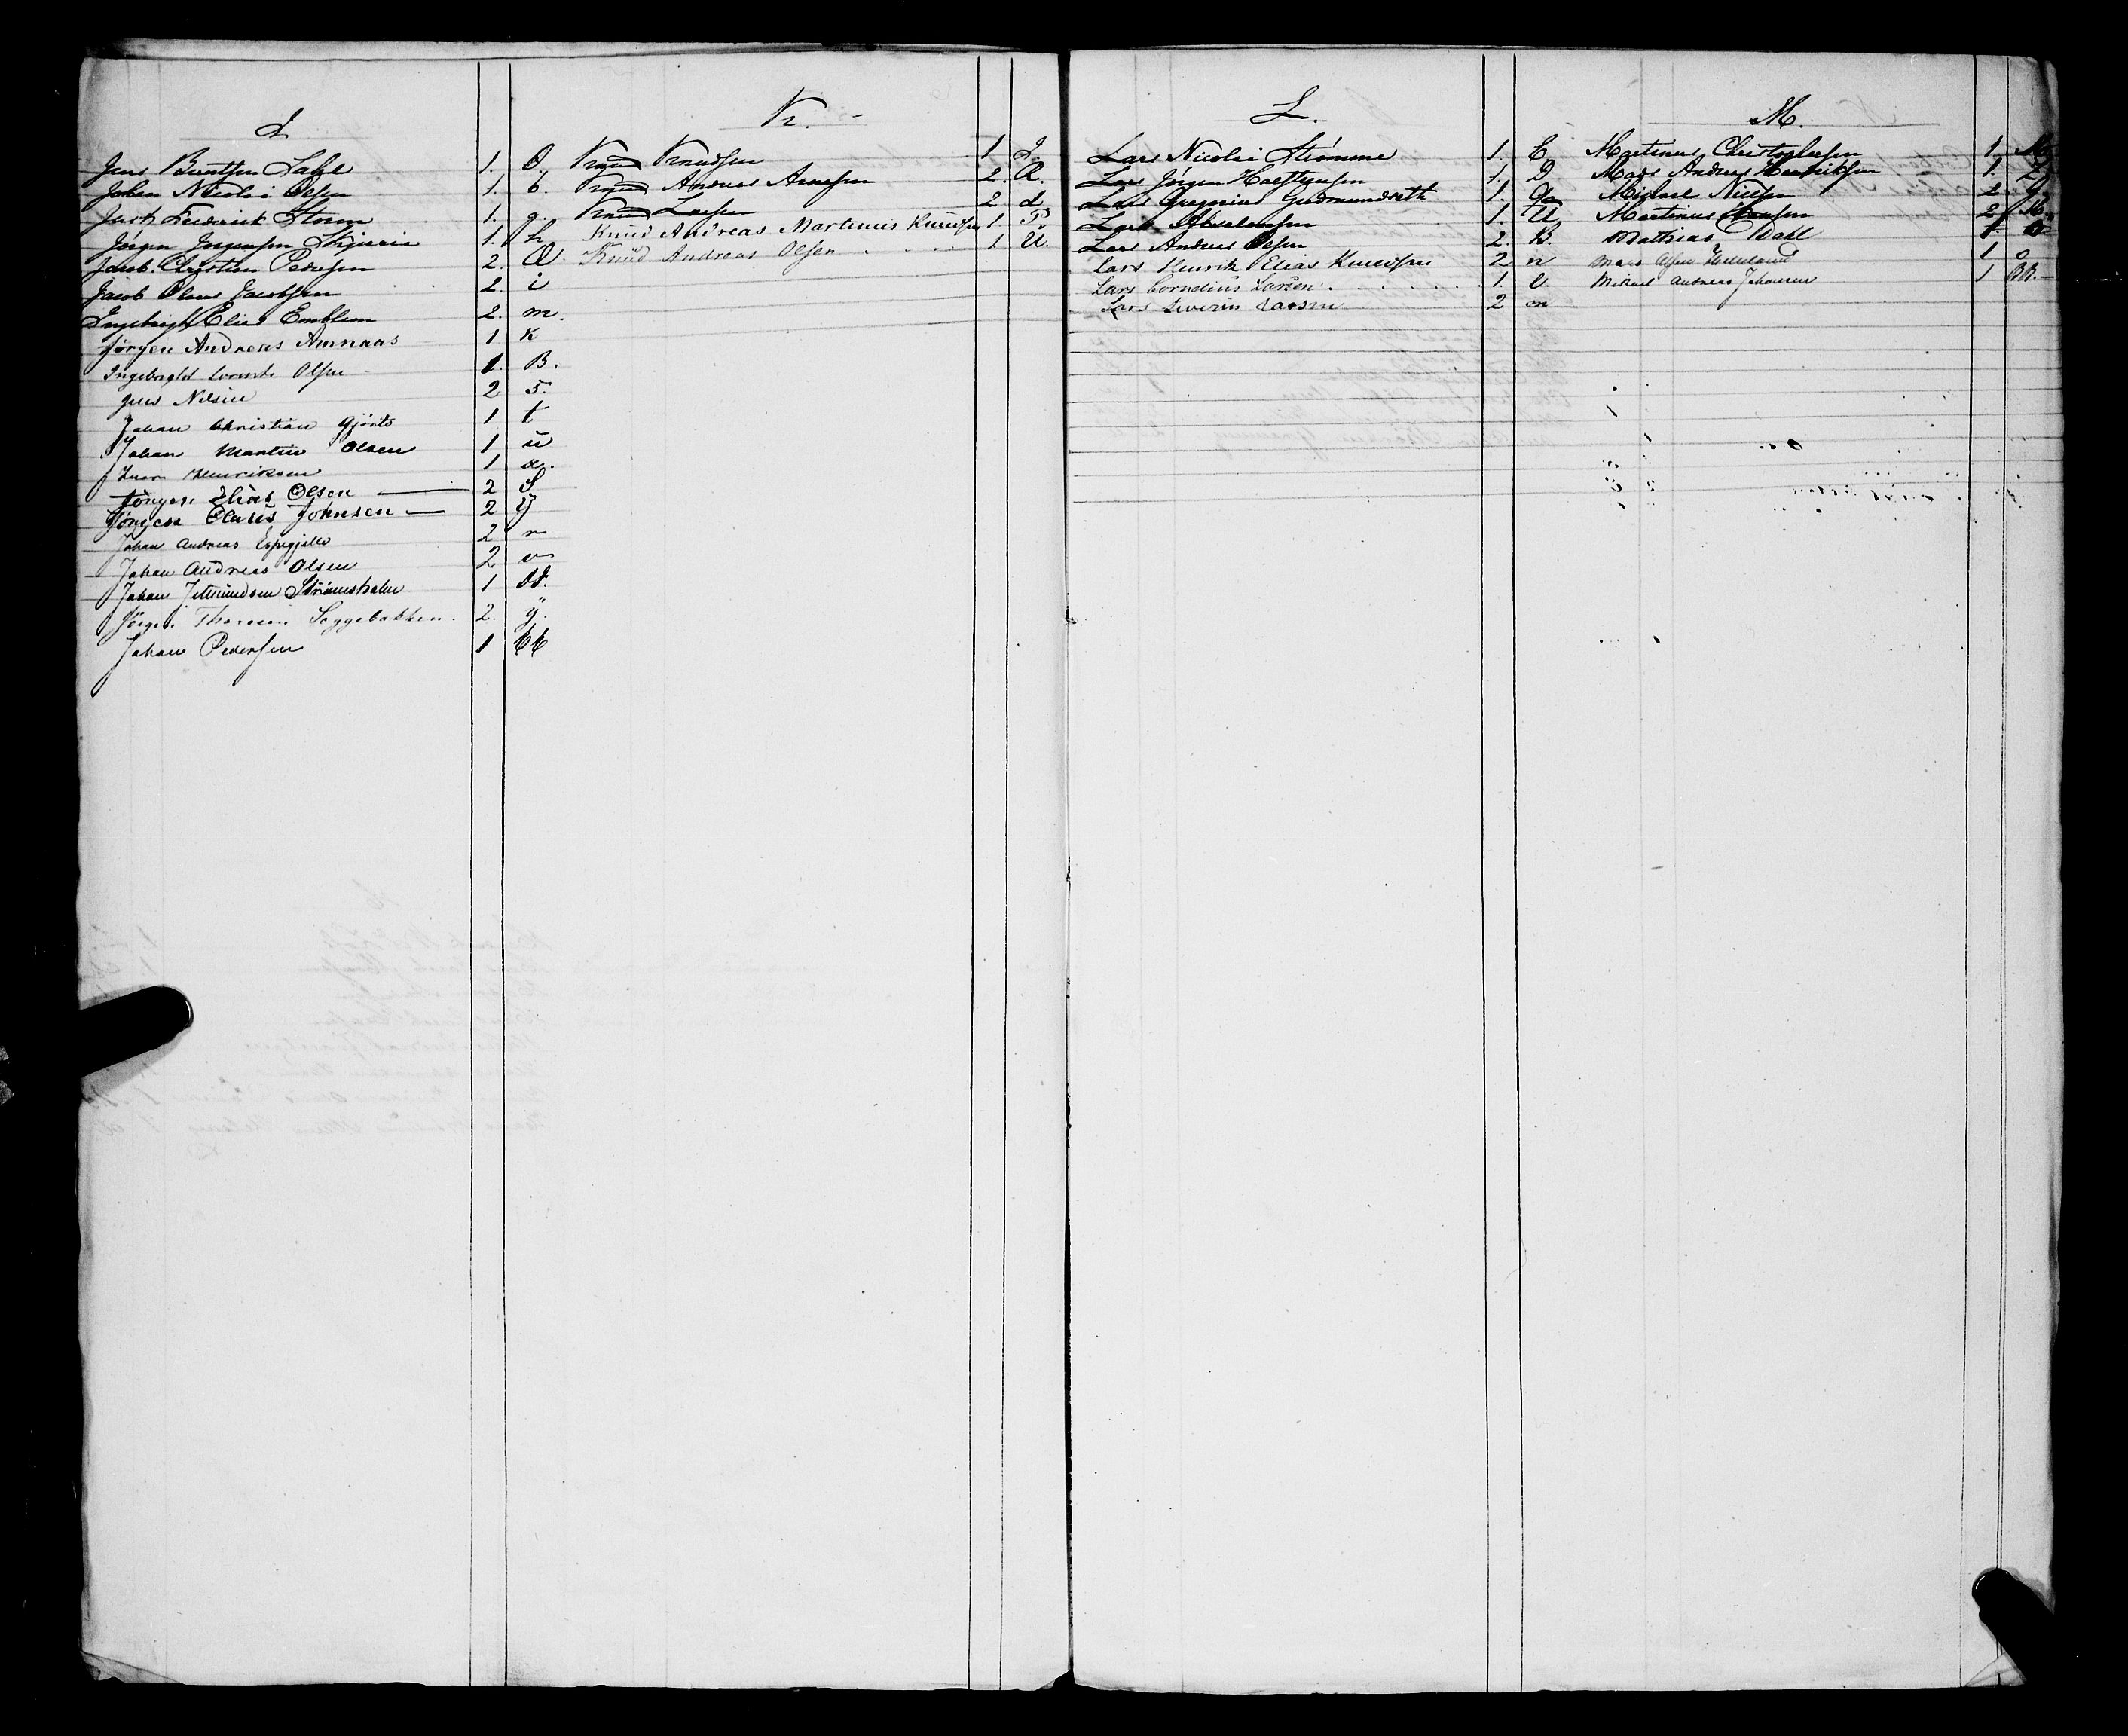 J.
Jens Berntsen Dahl 1. O.
Johan Nicolai Olsen 1. b.
Just Frederick Storm 1. g.
Jørgen Jørgensen 1. h
Jacob Christian Pedersen 2. Q.
Jacob Olaus Jacobsen 2. i
Ingebrigt Elias Emblem 2. m.
Jørgen Andreas Amnaas 1 k
Ingebrigt Olsen 1. B.
Jens Nilsen 2 5.
Johan Christian Gjørts 1 t
Johan Martin Olsen 1 u
Henriksen 1 x.
Jörgen Elias Olsen 2 S
Jörgen Elias Johnsen 2 Y
Johan Andreas Espegjelle 2 r
Johan Andreas Olsen 2 v
Johan Strömsholm 1
Jörgen Thoresen Seggebakken. 2. y.
Johan Pedersen 1
K.
Knud Knudsen 1 J.
Knud Andreas Arnesen 2. R.
Knud Larsen 2 d
Knud Andreas Martinus Knudsen 1. P
Knud Andreas Olsen 1 U.
L.
Lars Nicolai Strømme 1. C
Lars Jørgen Halstensen 1. D
Lars Gregorius Gudmundseth 1. G
Lars Absalonsen 1 U
Lars Andreas Olsen 2. B.
Lars Henrik Elias Knudsen 2 n
Lars Cornelius Larsen 1. v
Lars Severin Larsen 2 m
M.
Martinus Christophersen 1 M
Mads Andreas Henriksen 1. Z
Michael Nielsen 2 G.
Martinus Hansen 2
Mathias Dahl 1
Mads Olsen 1 o
Mikael Andreas Johansen 1 RR.